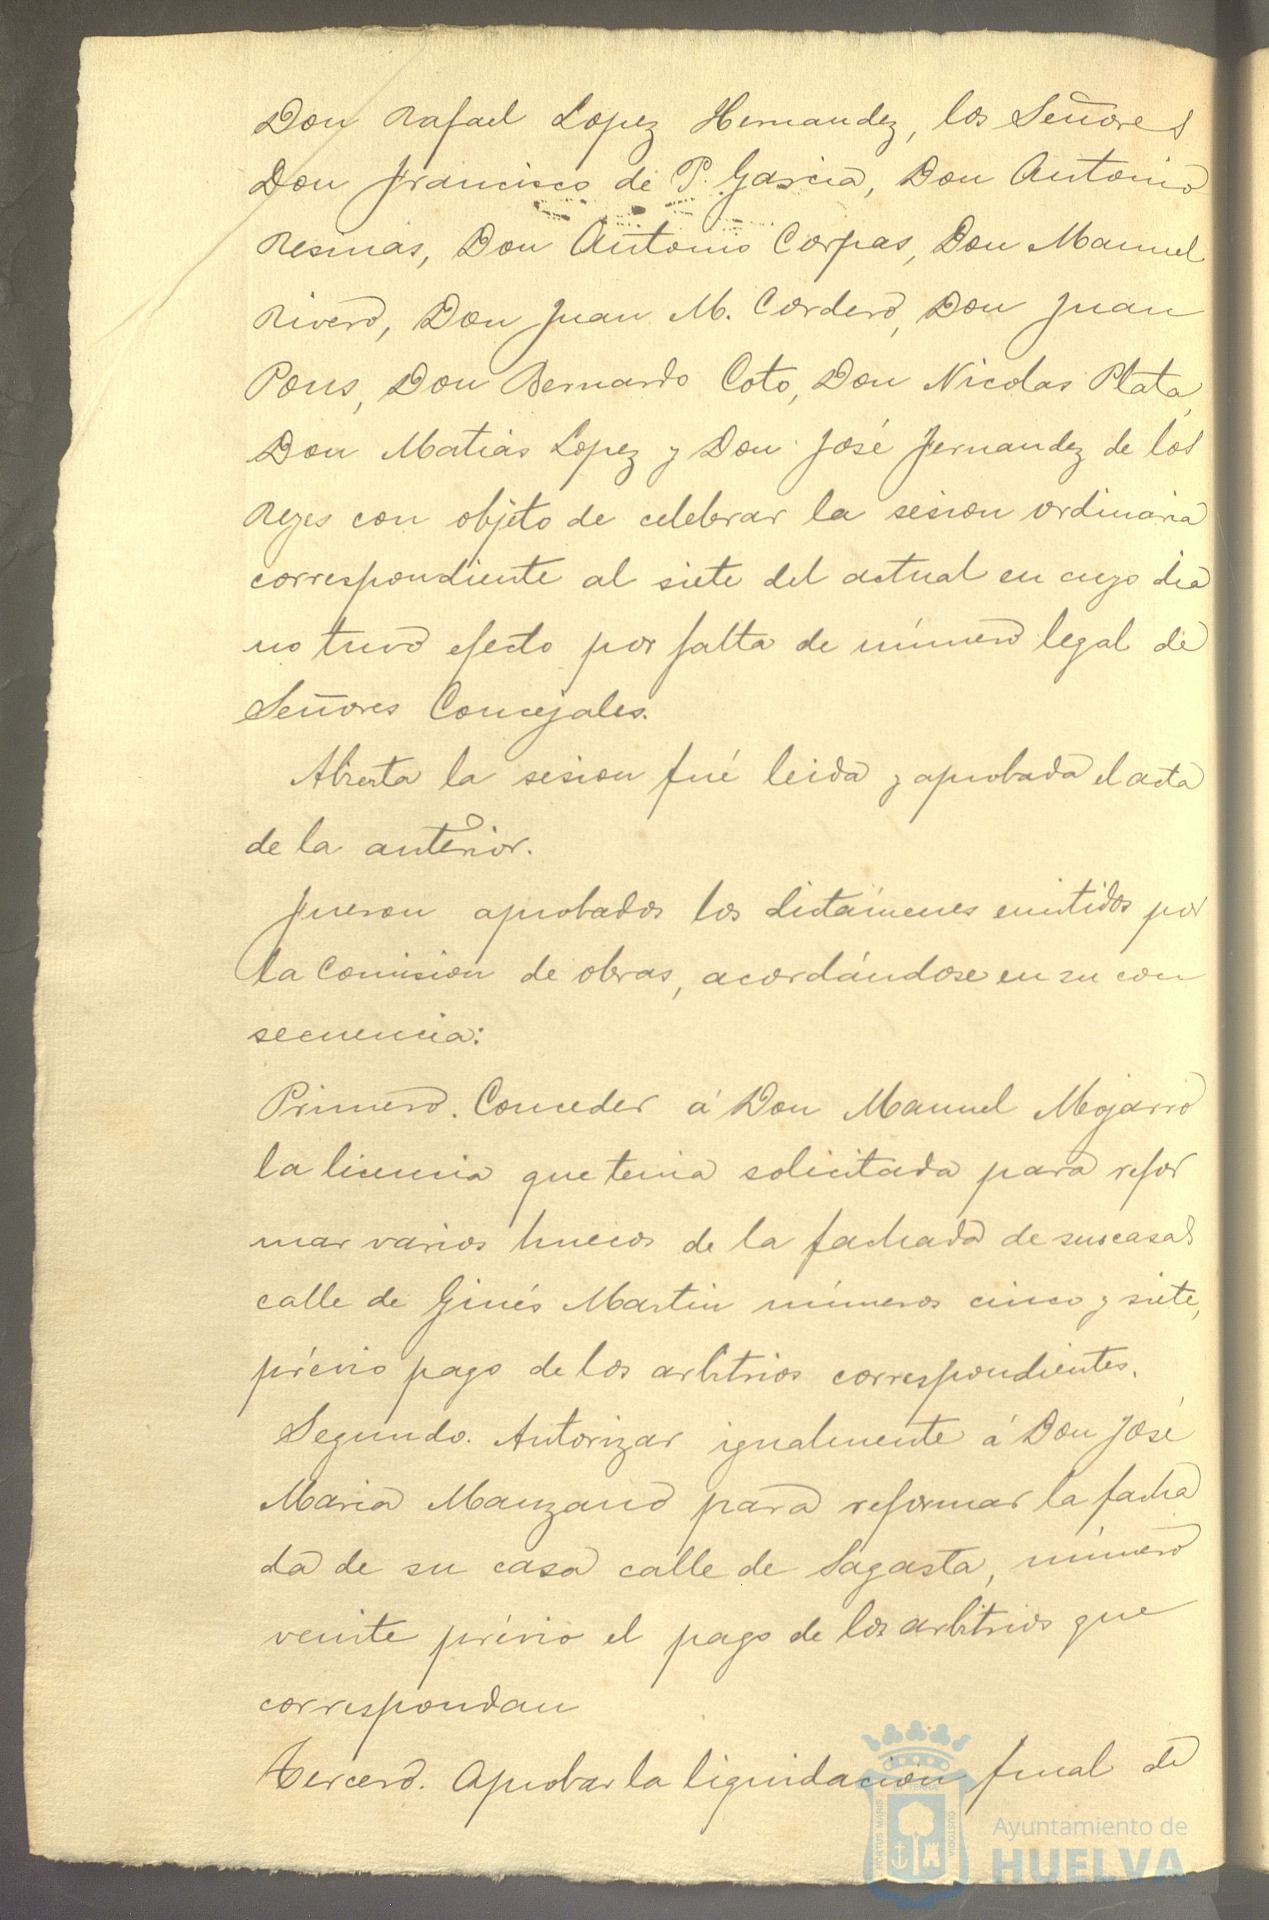 Don Rafael Lopez Hernandez, los Señores
Don Francisco de P. Garcia, Don Antonio
Resinas, Don Antonio Corpas, Don Manuel
Rivero, Don Juan M. Cordero, Don Juan
Pons, Don Bernardo Coto, Don Nicolas Plata,
Don Matias Lopez y Don José Fernandez de los
Reyes con objeto de celebrar la sesion ordinaria
correspondiente al siete del actual en cuyo dia
no tuvo efecto por falta de número legal de
Señores Concejales.
Abierta la sesion fué leida y aprobada el acta
de la anterior.
Fueron aprobados los dictámenes emitidos por
la Comision de obras, acordándose en su con
secuencia:
Primero. Conceder á Don Manuel Mojarro
la licencia que tenia solicitada para refor
mar varios huecos de la fachada de sus casas
calle de Ginés Martin números cinco y siete,
prévio pago de los arbitrios correspondientes.
Segundo. Autorizar igualmente á Don José
Maria Manzano para reformar la facha
da de su casa calle de Sagasta, número
veinte prévio el pago de los arbitrios que
correspondan
Tercero. Aprobar la liquidacion final de
PORTUS MARIS ET TERRÆ CUSTODIA
Ayuntamiento de
HUELVA